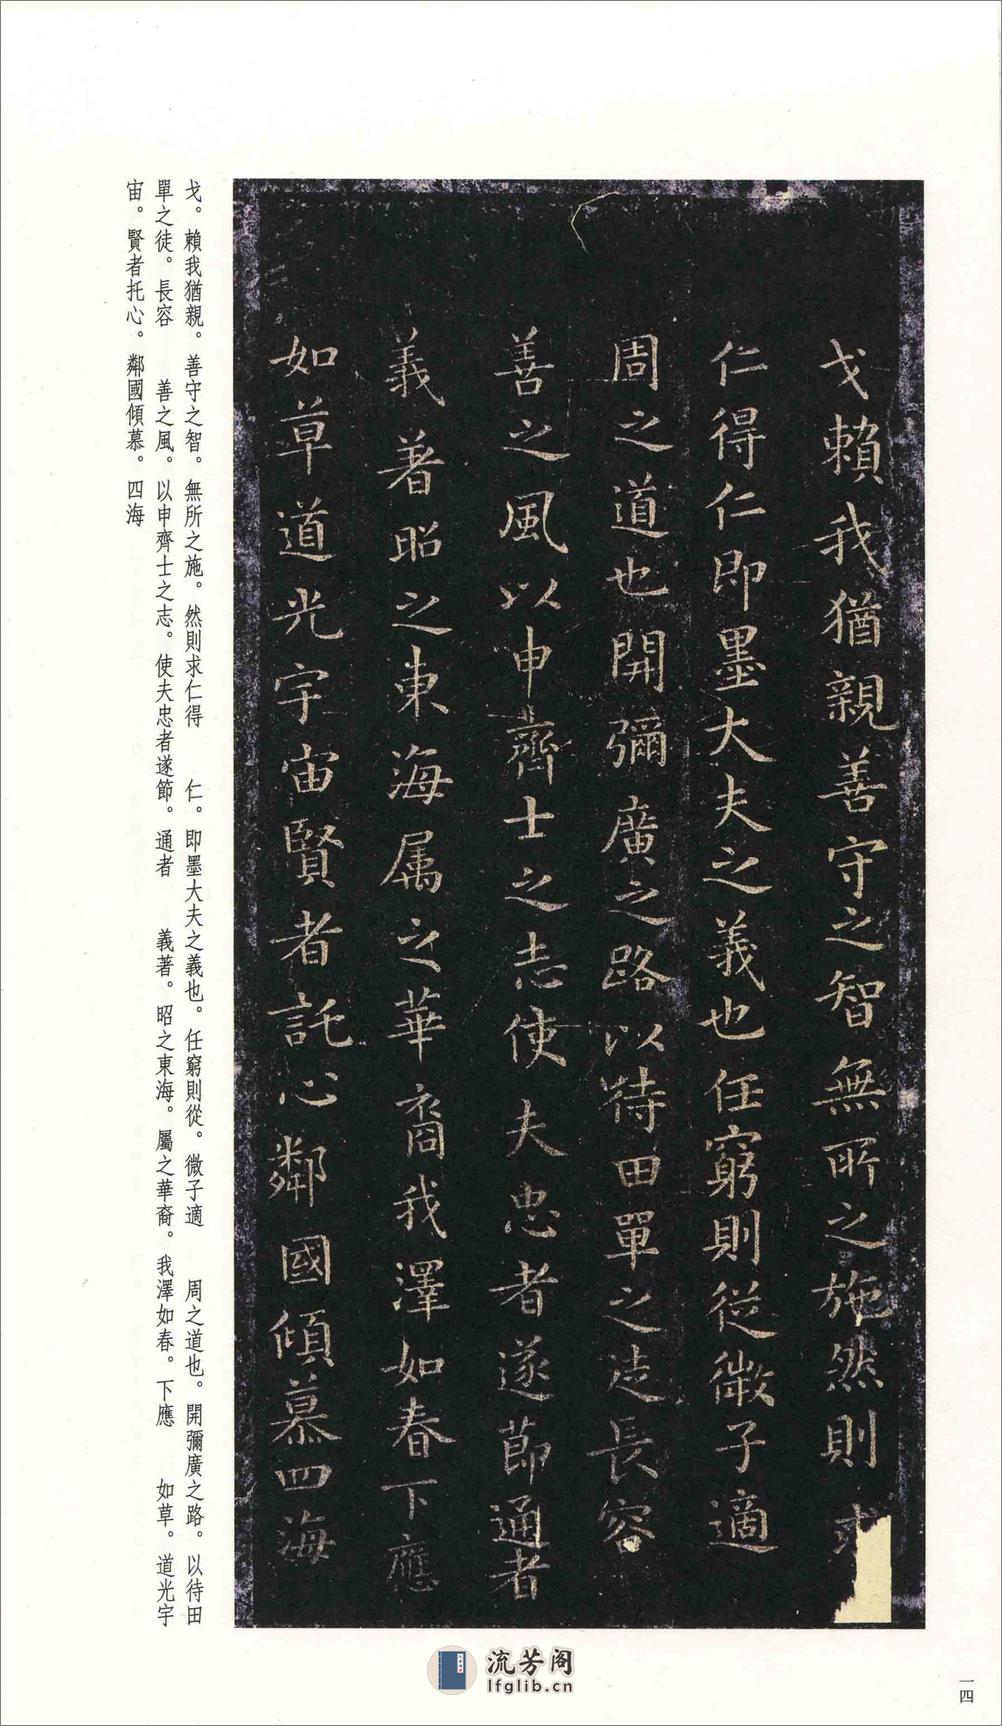 戈賴我猶親善守之智無所之施然則求
仁得仁即墨大夫之義也任窮則從微子適
周之道也開彌廣之路以待田單之徒長容
善之風以申齊士之志使夫忠者遂節通者
義著昭之東海属之華裔我澤如春下應
如草道光宇宙賢者託心鄰國傾慕四海
戈。賴我猶親。善守之智。無所之施。然則求仁得 仁。即墨大夫之義也。任窮則從。微子適 周之道也。開彌廣之路。以待田
單之徒。長容 善之風。以申齊士之志。使夫忠者遂節。通者 義著。昭之東海。屬之華裔。我澤如春。下應 如草。道光宇
宙。賢者托心。鄰國傾慕。四海
流芳阁
lfglib.cn
一四